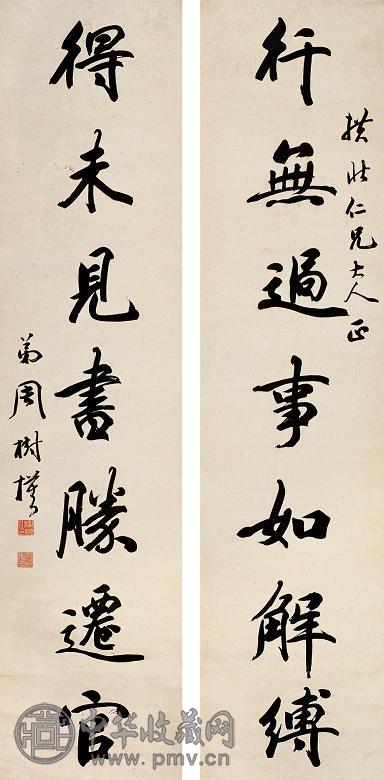 拱北仁兄大人正
行無過事如解縛
得未見書勝遷官
弟周樹模
中华收藏网
www.pmv.cn